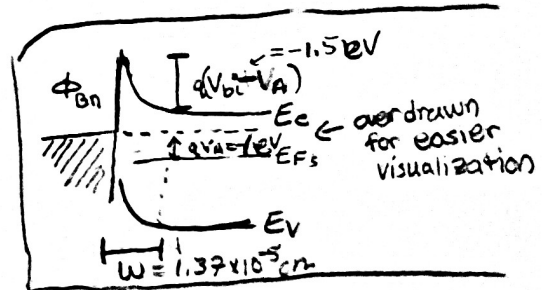 = -1.5 eV
q(Vbi - VA)
ΦBn
Ec
over drawn
for easier
visualization
EFs
EV
W = 1.37 x 10^-5 cm